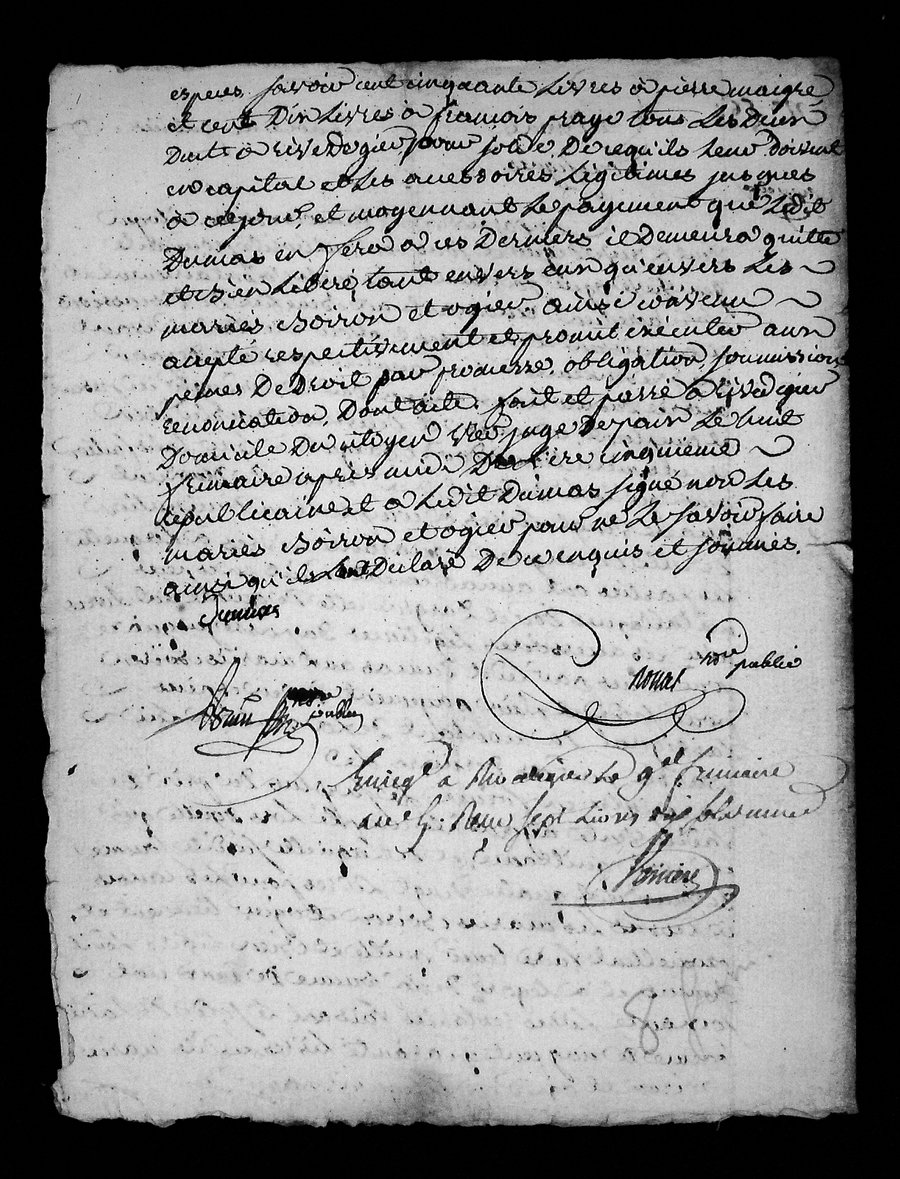 especes savoir cent cinquante Livres a pierre maigre
et cent Dix Livres a francois praye tous Les Deux
Dud. a rive De gier pour solde De ce qu'ils Leur Doivent
en capital et Les accessoires Légitimes jusques
a ce jour, et moyennant Le payement que Ledit
Dumas en fera a ces Derniers il Demeura quitte
et bien Libéré, tant envers eux qu'envers Les
mariés Boiron et ogier ainsi convenu
accepté respectivement et promit exécuter aux
peines De Droit par promesse, obligation, soumission
renonciation, Dont acte, fait et passé a rive de gier
Domicile Du citoyen juge De paix Le huit
frimaire après midi Dere cinquieme
republicaine et a Ledit Dumas signé non Les
mariés Boiron et ogier pour ne Le savoir faire
ainsi qu'ils ont Declaré De ce enquis et sommés.
Dumas
nore public
nore public
Enregé a Rive de gier Le 9 frimaire
an 5. Reçu sept Livres